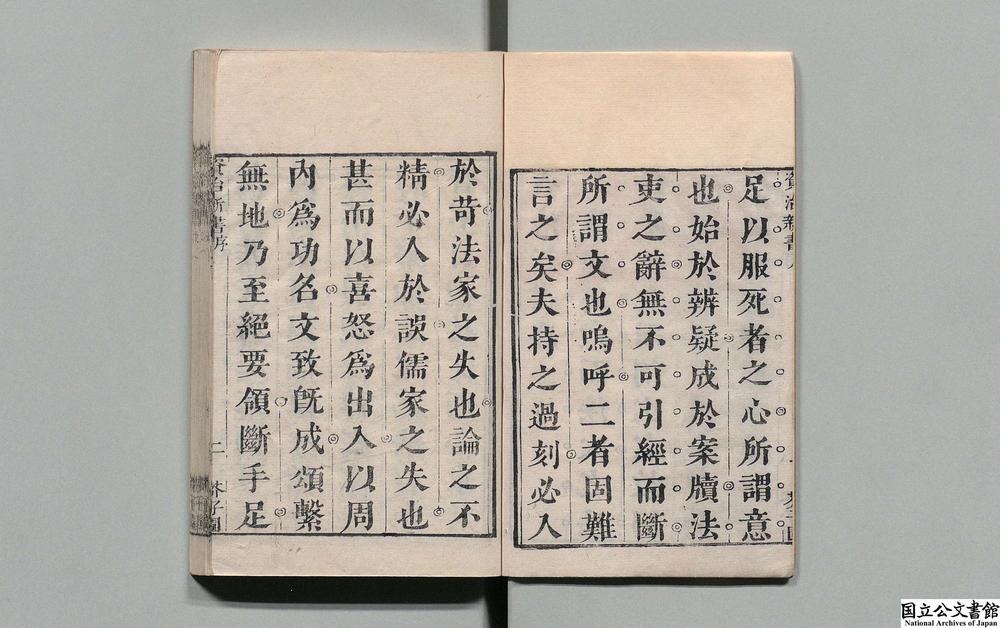 足以服死者之心所謂意
也始於辨疑成於案牘法
吏之辭無不可引經而斷
所謂文也嗚呼二者固難
言之矣夫持之過刻必入
於苛法家之失也論之不
精必入於誤儒家之失也
甚而以喜怒爲出入以周
內爲功名文致旣成頌繫
無地乃至絕要領斷手足
資治新書序
二
芥子園
国立公文書館
National Archives of Japan